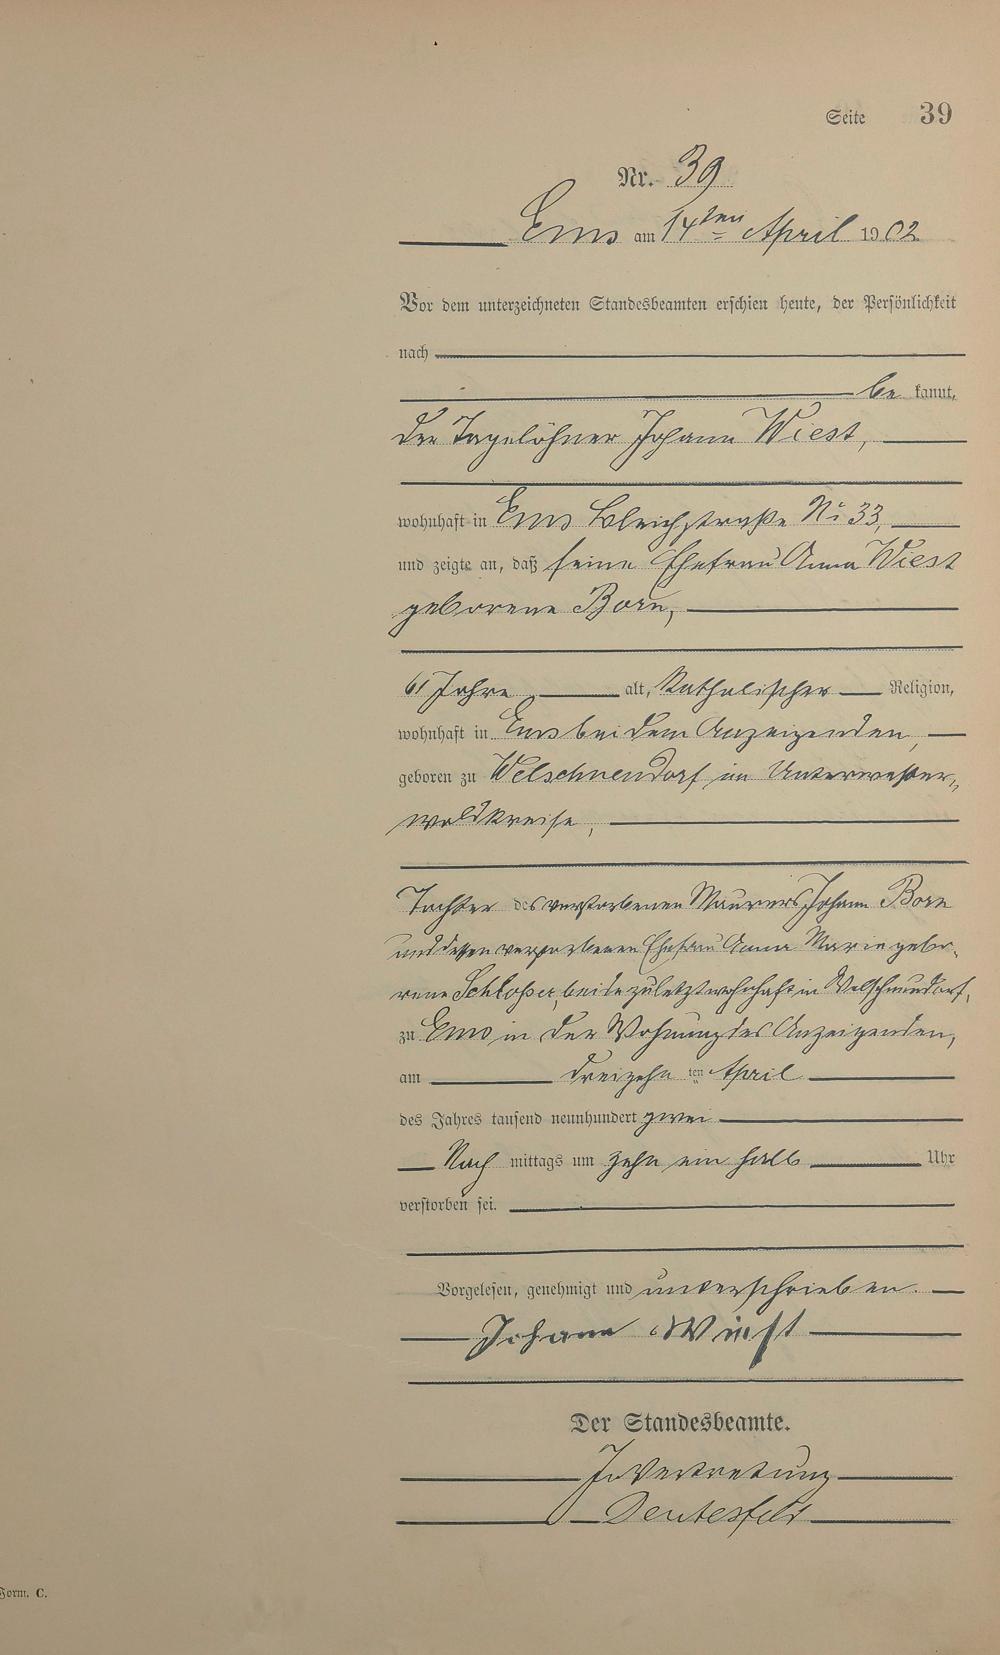 Seite 39
Nr. 39
Ems am 14ten April 1902
Vor dem unterzeichneten Standesbeamten erschien heute, der Persönlichkeit
nach
be kannt,
der Tagelöhner Johann Wiest,
wohnhaft in Ems Bleichstraße No 33,
und zeigte an, daß seine Ehefrau Anna Wiest
geborene Born,
61 Jahre alt, katholischer Religion,
wohnhaft in Ems bei dem Anzeigenden,
geboren zu Welschneudorf im Unterwester„
waldkreise,
Tochter des verstorbenen Maurers Johann Born
und dessen verstorbenen Ehefrau Anna Marie gebo-
rene Schlosser, beide zuletzt wohnhaft in Welschneudorf,
zu Ems in der Wohnung des Anzeigenden,
am dreizehn ten April
des Jahres tausend neunhundert zwei
Nach mittags um zehn ein halb Uhr
verstorben sei.
Vorgelesen, genehmigt und unterschrieben.
Johann Wiest
Der Standesbeamte.
In Vertretung
Form. C.